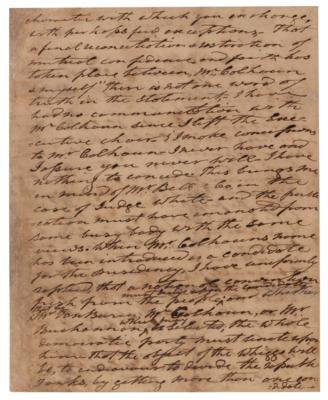 character with which you exchange,
with perhaps few exceptions. That
a final reconciliation & restoration of
mutual confidence and faith has
taken place between Mr. Calhoun
& myself" There is not one word of
truth in the statement. I have
had no communication with
Mr Calhoun since I left the Exe-
cutive chair. I make concessions
to Mr. Calhoun I never have and
I assure you never will. I have
nothing to concede. This brings me
in mind of Mr Bell & Co in the
case of Judge White and the publi-
cation must have emanated from
some busy body with the same
views. When Mr. Calhouns name
has been introduced as a candidate
for the presidency, I have firmly
replied, that a
fresh from the people, and
Mr. Van Buren, Mr. Calhoun, or Mr
Buchannan, the whole
democratic party must unite upon
him that the object of the Whigs will
be, to endeavour to divide the republi-
can ranks, by getting more than one can-
didate